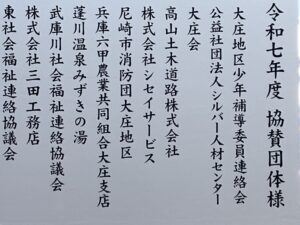 令和七年度 協賛団体様
大庄地区少年補導委員連絡会
公益社団法人シルバー人材センター
大庄会
高山土木道路株式会社
株式会社シセイサービス
尼崎市消防団大庄地区
兵庫六甲農業共同組合大庄支店
蓬川温泉みずきの湯
武庫川社会福祉連絡協議会
株式会社三田工務店
東社会福祉連絡協議会